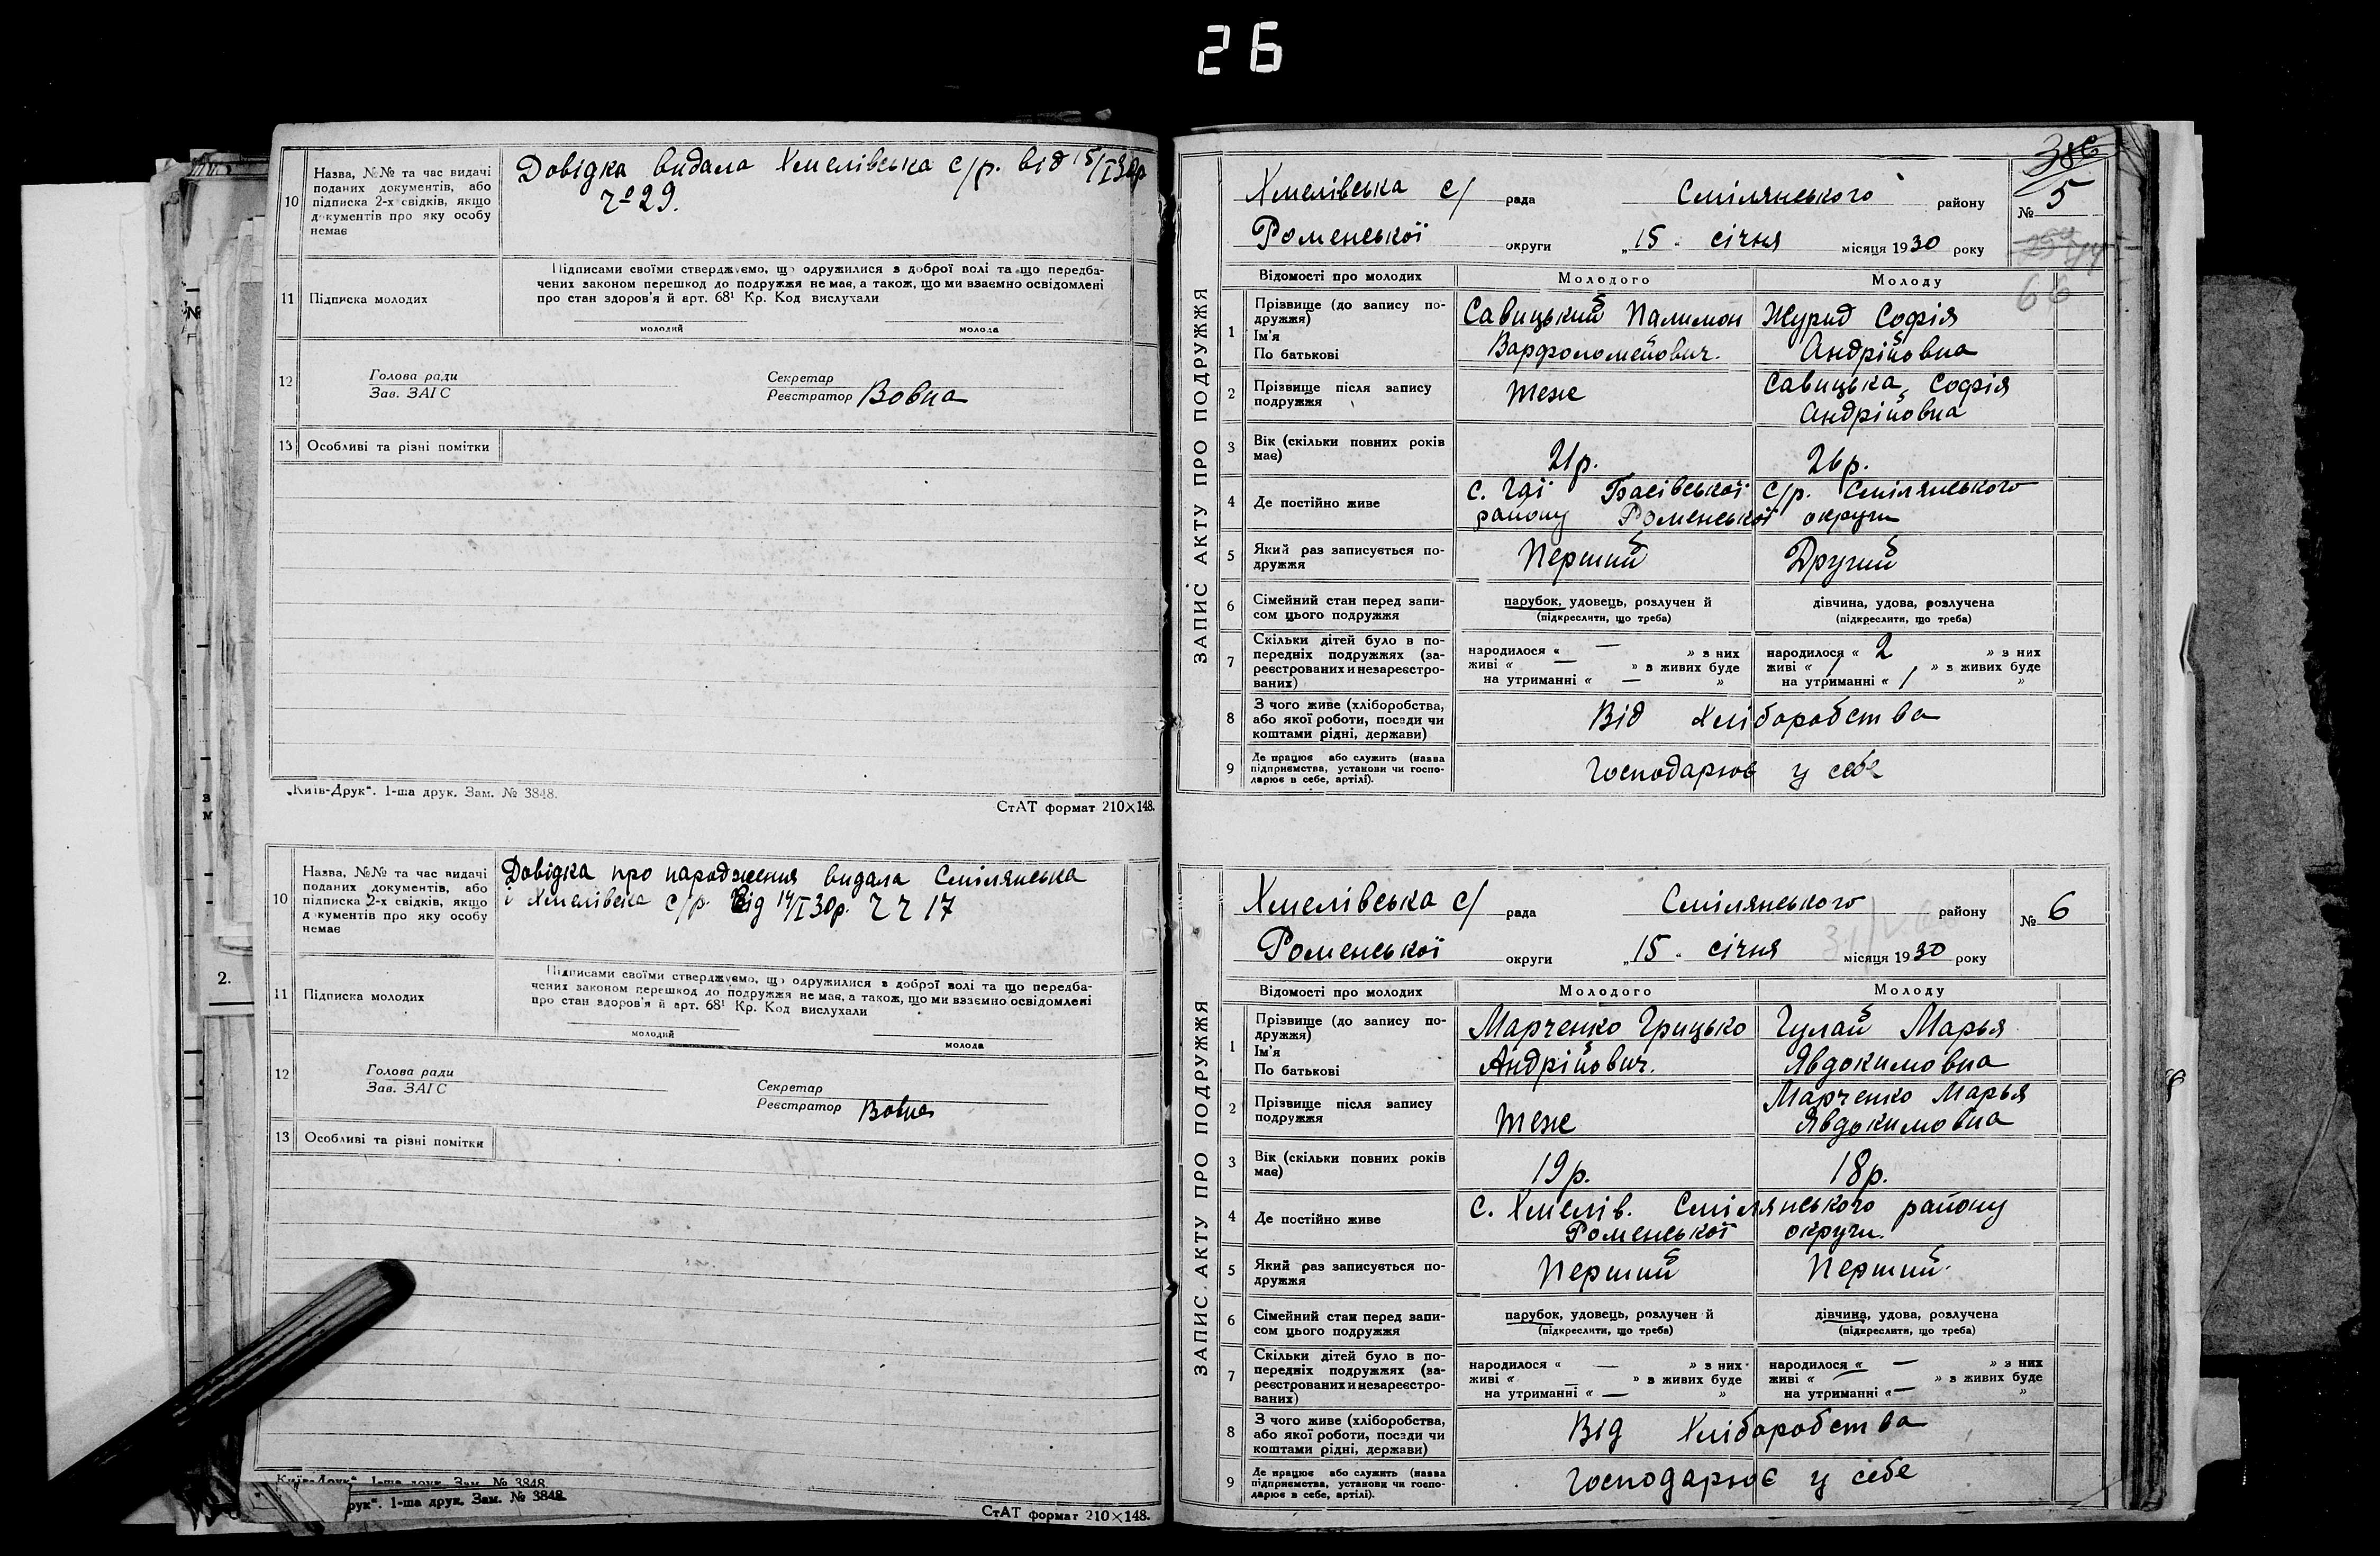 26
10 Назва, №№ та час видачі
поданих документів, або
підписка 2-х свідків, якщо
документів про яку особу
немає
Довідка видала Хмелівська с/р. від 15/I 30р
№ 29.
11 Підписка молодих
Підписами своїми стверджуємо, що одружилися з доброї волі та що передба-
чених законом перешкод до подружжя не має, а також, що ми взаємно освідомлені
про стан здоров'я й арт. 68¹ Кр. Код вислухали
молодий молода
12 Голова ради
Зав. ЗАГС
Секретар
Реєстратор Вовна
13 Особливі та різні помітки
„Київ-Друк“. 1-ша друк. Зам. № 3848.
СтАТ формат 210×148.
10 Назва, №№ та час видачі
поданих документів, або
підписка 2-х свідків, якщо
документів про яку особу
немає
Довідка про народження видала Смілянська
і Хмелівська с/р. Від 14/I 30р. 17
11 Підписка молодих
Підписами своїми стверджуємо, що одружилися з доброї волі та що передба-
чених законом перешкод до подружжя не має, а також, що ми взаємно освідомлені
про стан здоров'я й арт. 68¹ Кр. Код вислухали
молодий молода
12 Голова ради
Зав. ЗАГС
Секретар
Реєстратор Вовна
13 Особливі та різні помітки
Київ-Друк“. 1-ша друк. Зам. № 3848
рук“. 1-ша друк. Зам. № 3848
СтАТ формат 210×148.
2.
ЗАПИС АКТУ ПРО ПОДРУЖЖЯ
386
Хмелівська с/ рада Смілянського району
№ 5
Роменської округи „15“ січня місяця 1930 року
66
Відомості про молодих Молодого Молоду
1 Прізвище (до запису по-
дружжя)
Ім'я
По батькові
Савицький Палимон
Варфоломейович.
Журид Софія
Андрійовна
2 Прізвище після запису
подружжя
теже
Савицька, Софія
Андрійовна
3 Вік (скільки повних років
має)
21р.
26р.
4 Де постійно живе
с. Гаї Басівської с/р. Смілянського
району Роменської округи
5 Який раз записується по-
дружжя
Перший
Другий
6 Сімейний стан перед запи-
сом цього подружжя
парубок, удовець, розлучен й
(підкреслити, що треба)
дівчина, удова, розлучена
(підкреслити, що треба)
7 Скільки дітей було в по-
передніх подружжях (за-
реєстрованих и незареєстро-
ваних)
народилося « — » з них
живі « — » з живих буде
на утриманні « — »
народилося « 2 » з них
живі « 1 » з живих буде
на утриманні « 1 »
8 З чого живе (хліборобства,
або якої роботи, посади чи
коштами рідні, держави)
Від Хліборобства
9 Де працює або служить (назва
підприємства, установи чи госпо-
дарює в себе, артілі).
Господарює у себе
ЗАПИС АКТУ ПРО ПОДРУЖЖЯ
Хмелівська с/ рада Смілянського району
№ 6
Роменської округи „15“ січня місяця 1930 року
Відомості про молодих Молодого Молоду
1 Прізвище (до запису по-
дружжя)
Ім'я
По батькові
Марченко Грицько
Андрійович.
Гулай Марья
Явдокимовна
2 Прізвище після запису
подружжя
теже
Марченко Марья
Явдокимовна
3 Вік (скільки повних років
має)
19р.
18р.
4 Де постійно живе
С. Хмелів. Смілянського району
Роменської округи.
5 Який раз записується по-
дружжя
Перший
Перший
6 Сімейний стан перед запи-
сом цього подружжя
парубок, удовець, розлучен й
(підкреслити, що треба)
дівчина, удова, розлучена
(підкреслити, що треба)
7 Скільки дітей було в по-
передніх подружжях (за-
реєстрованих и незареєстро-
ваних)
народилося « — » з них
живі « — » з живих буде
на утриманні « — »
народилося « — » з них
живі « — » з живих буде
на утриманні « — »
8 З чого живе (хліборобства,
або якої роботи, посади чи
коштами рідні, держави)
Від Хліборобства
9 Де працює або служить (назва
підприємства, установи чи госпо-
дарює в себе, артілі).
Господарює у себе